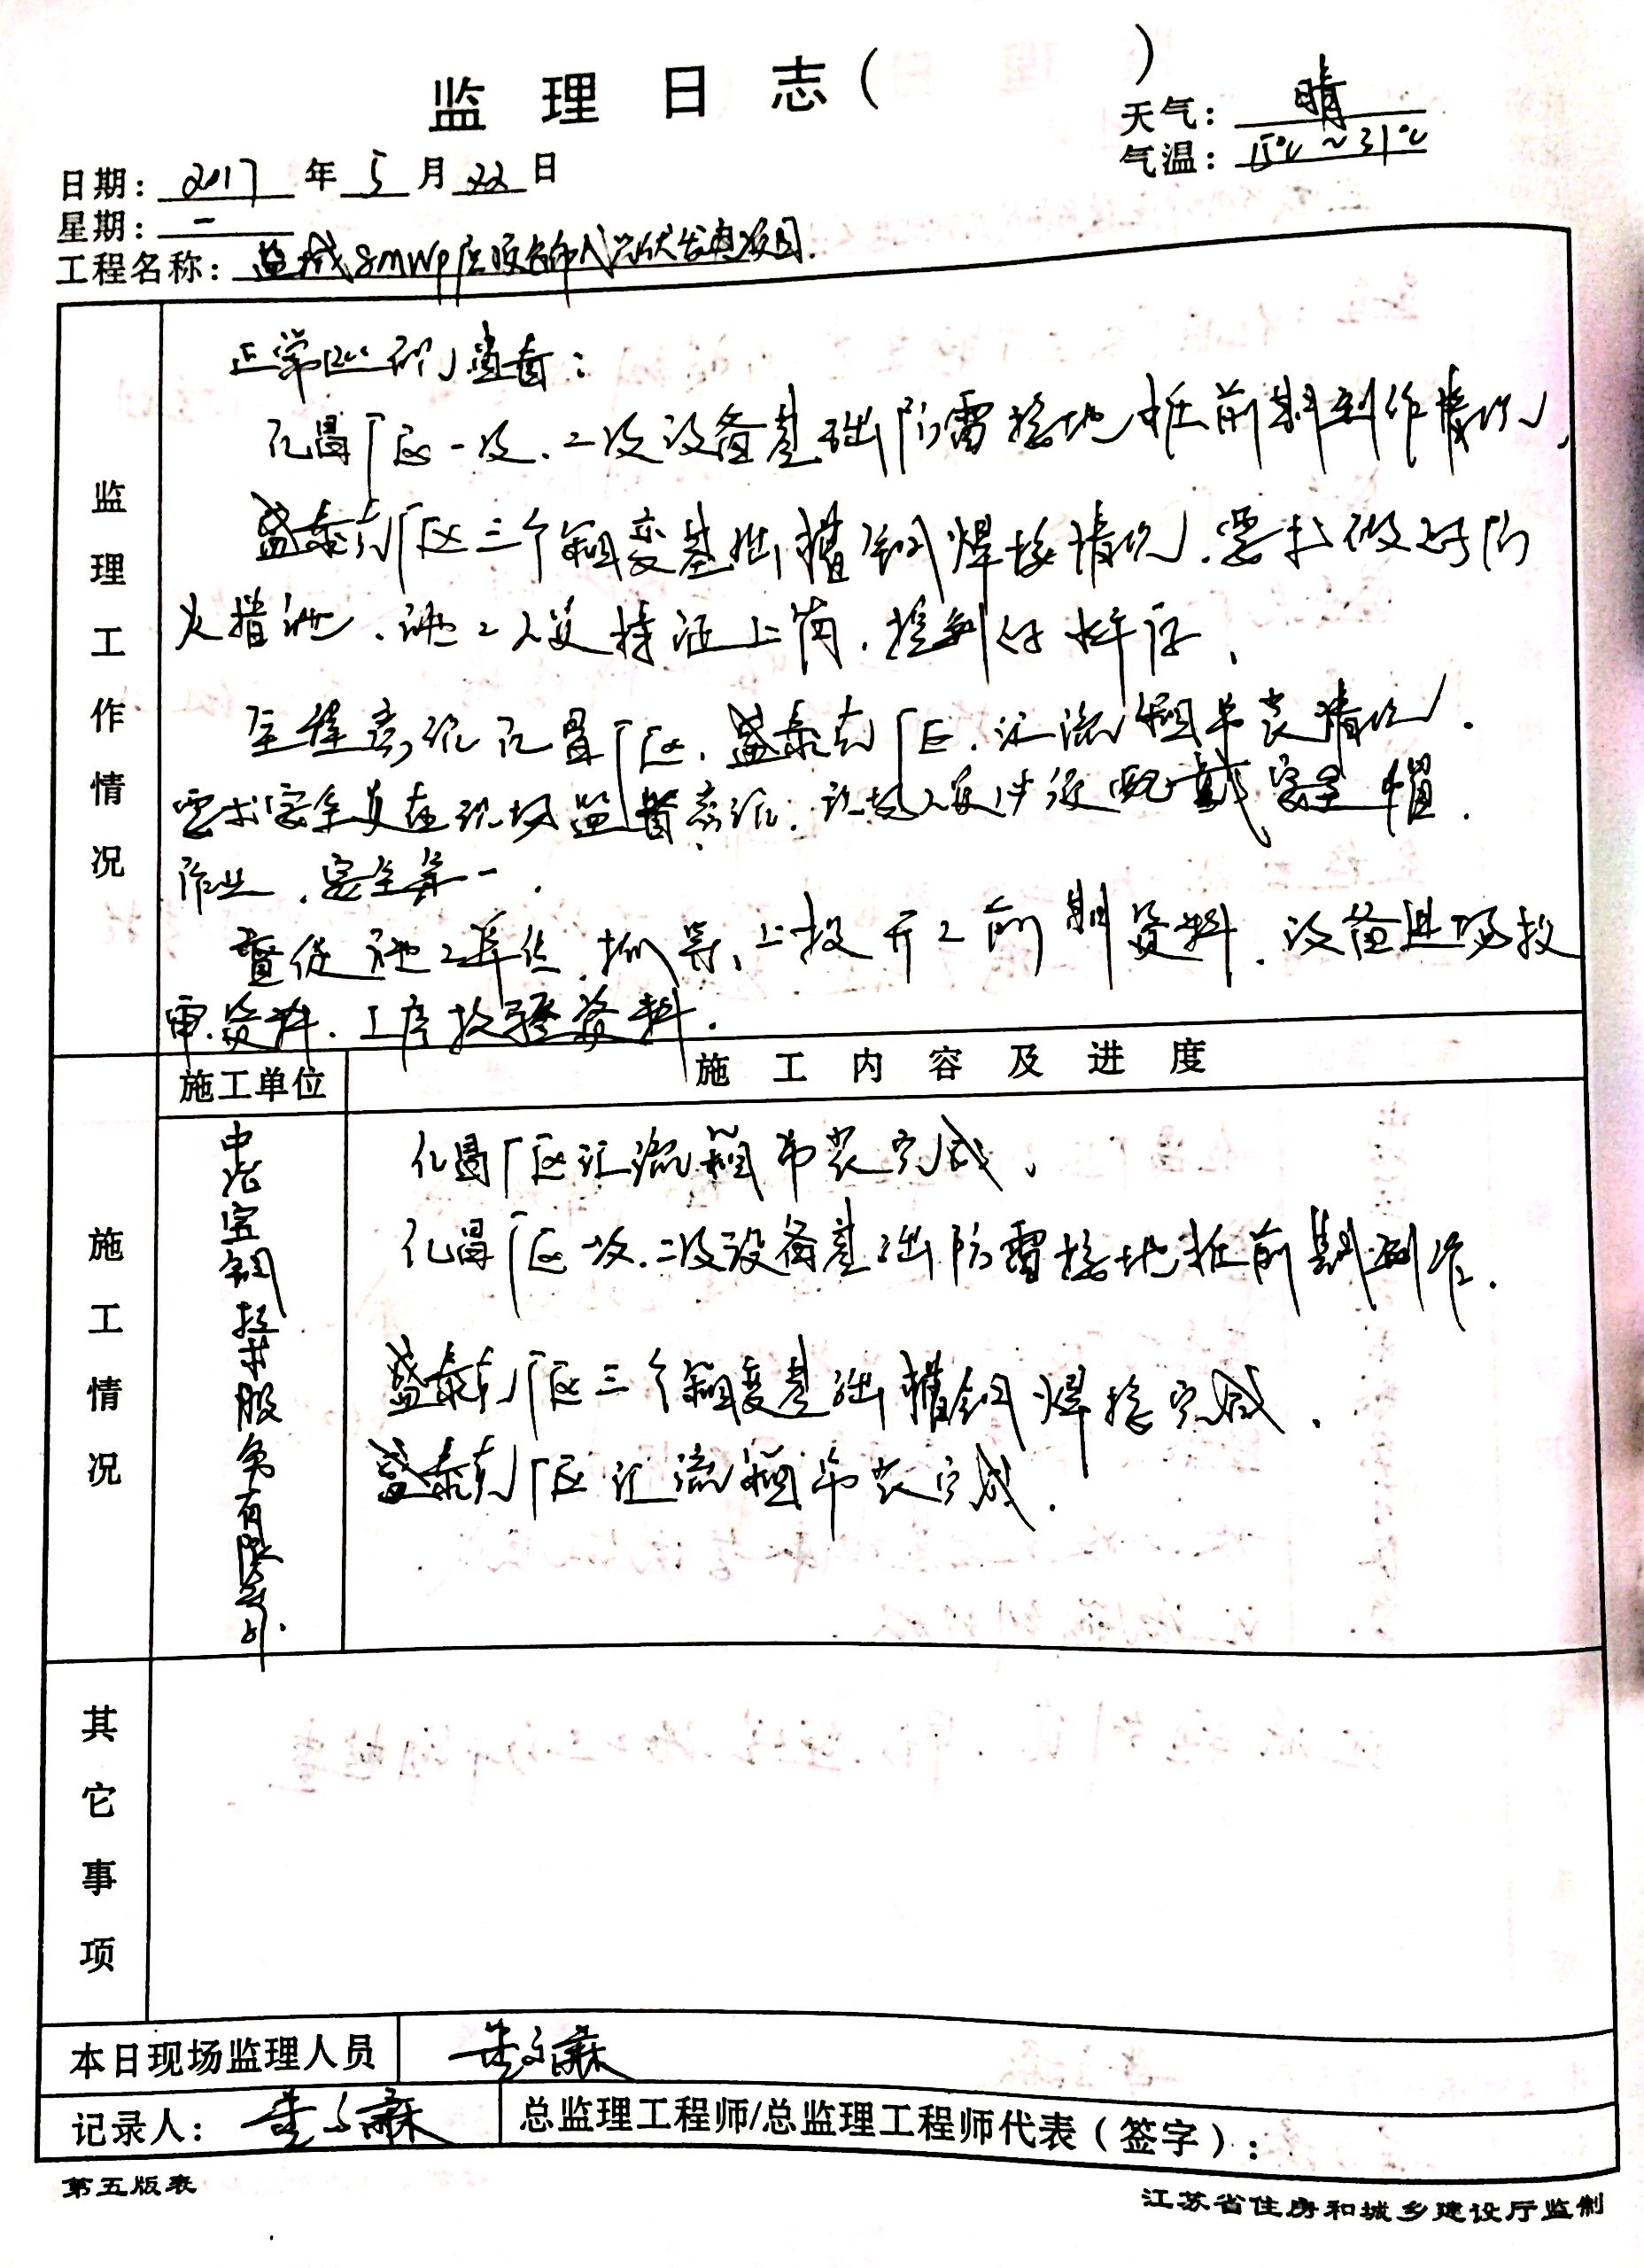 监 理 日 志（ ）
天气：晴
气温：15℃～31℃
日期：2017年5月22日
星期：一
工程名称：盐城8MWp屋顶分布式光伏发电项目.
监理工作情况
正常巡视检查：
亿昌厂区一次、二次设备基础防雷接地桩前期制作情况，
盛泰克厂区三个箱变基础槽钢焊接情况，要求做好防
火措施、施工人员持证上岗，
亿昌厂区、盛泰克厂区、汇流箱吊装情况，
要求安全员在现场监督，人员必须配戴安全帽
作业，安全第一．
督促施工单位，上报开工前期资料、设备进场报
审资料、工序报验资料．
施工单位
施 工 内 容 及 进 度
施工情况
技术服务有限公司.
亿昌厂区汇流箱吊装完成、
亿昌厂区一次、二次设备基础防雷接地桩前期制作．
盛泰克厂区三个箱变基础槽钢焊接完成．
盛泰克厂区汇流箱吊装完成．
其它事项
本日现场监理人员
记录人：
总监理工程师/总监理工程师代表（签字）：
第五版表
江苏省住房和城乡建设厅监制